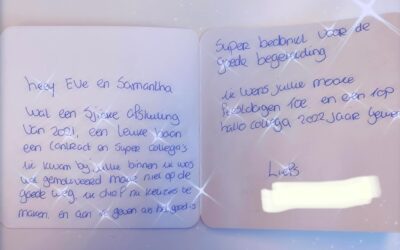 Heey Eve en Samantha
Wat een fijne afsluiting
van 2021, een leuke baan
een contract en super collega's
ik kwam bij jullie binnen ik was
wel gemotiveerd maar niet op de
goede weg. ik durf nu keuzes te
maken. en aan te geven als het goed is
Super bedankt voor de
goede begeleiding
ik wens jullie mooie
feestdagen toe en een top
hallo collega 2022 jaar
Liefs